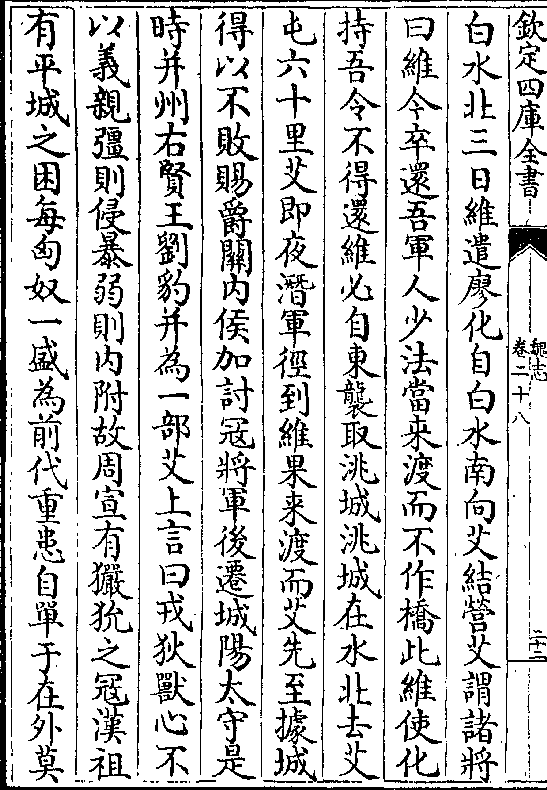 欽定四庫全書
魏志
卷二十八
二十二
白水北三日維遣廖化自白水南向艾結營艾謂諸將
曰維令卒還吾軍人少法當来渡而不作橋此維使化
持吾令不得還維必自東襲取洮城洮城在水北去艾
屯六十里艾即夜潛軍徑到維果来渡而艾先至據城
得以不敗賜爵關内侯加討冦將軍後遷城陽太守是
時并州右賢王劉豹并為一部艾上言曰戎狄獸心不
以義親彊則侵暴弱則内附故周宣有玁狁之冦漢祖
有平城之困每匈奴一盛為前代重患自單于在外莫